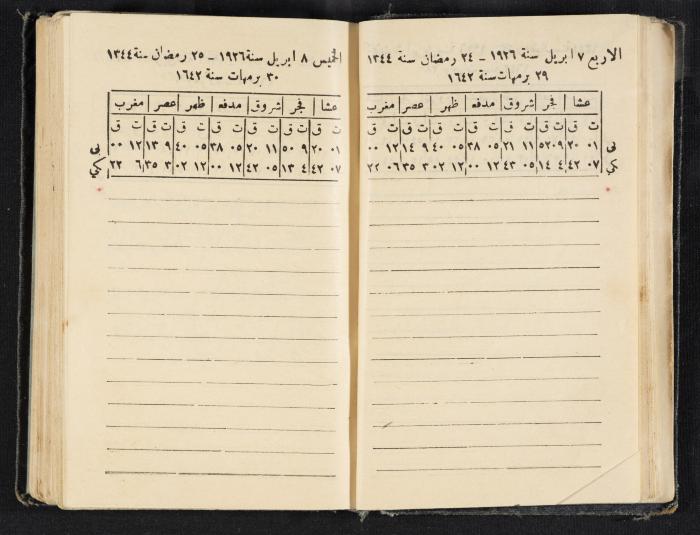 الاربع ٧ ابريل سنة ١٩٢٦ ـ ٢٤ رمضان سنة ١٣٤٤
٢٩ برمهات سنة ١٦٤٢
عشا فجر شروق مدفه ظهر عصر مغرب
ت ق ت ق ت ق ت ق ت ق ت ق ت ق
٠١ ٢٠ ٠٩ ٥٢ ١١ ٢١ ٠٥ ٣٨ ٠٥ ٤٠ ٩ ١٤ ١٢ ٠٠
٠٧ ٤٢ ٤ ١٤ ٠٥ ٤٣ ١٢ ٠٠ ١٢ ٠٢ ٣ ٣٥ ٠٦ ٢٢
الخميس ٨ ابريل سنة ١٩٢٦ ـ ٢٥ رمضان سنة ١٣٤٤
٣٠ برمهات سنة ١٦٤٢
عشا فجر شروق مدفه ظهر عصر مغرب
ت ق ت ق ت ق ت ق ت ق ت ق ت ق
٠١ ٢٠ ٩ ٥٠ ١١ ٢٠ ٠٥ ٣٨ ٠٥ ٤٠ ٩ ١٣ ١٢ ٠٠
٠٧ ٤٢ ٤ ١٣ ٠٥ ٤٢ ١٢ ٠٠ ١٢ ٠٢ ٣ ٣٥ ٦ ٢٢